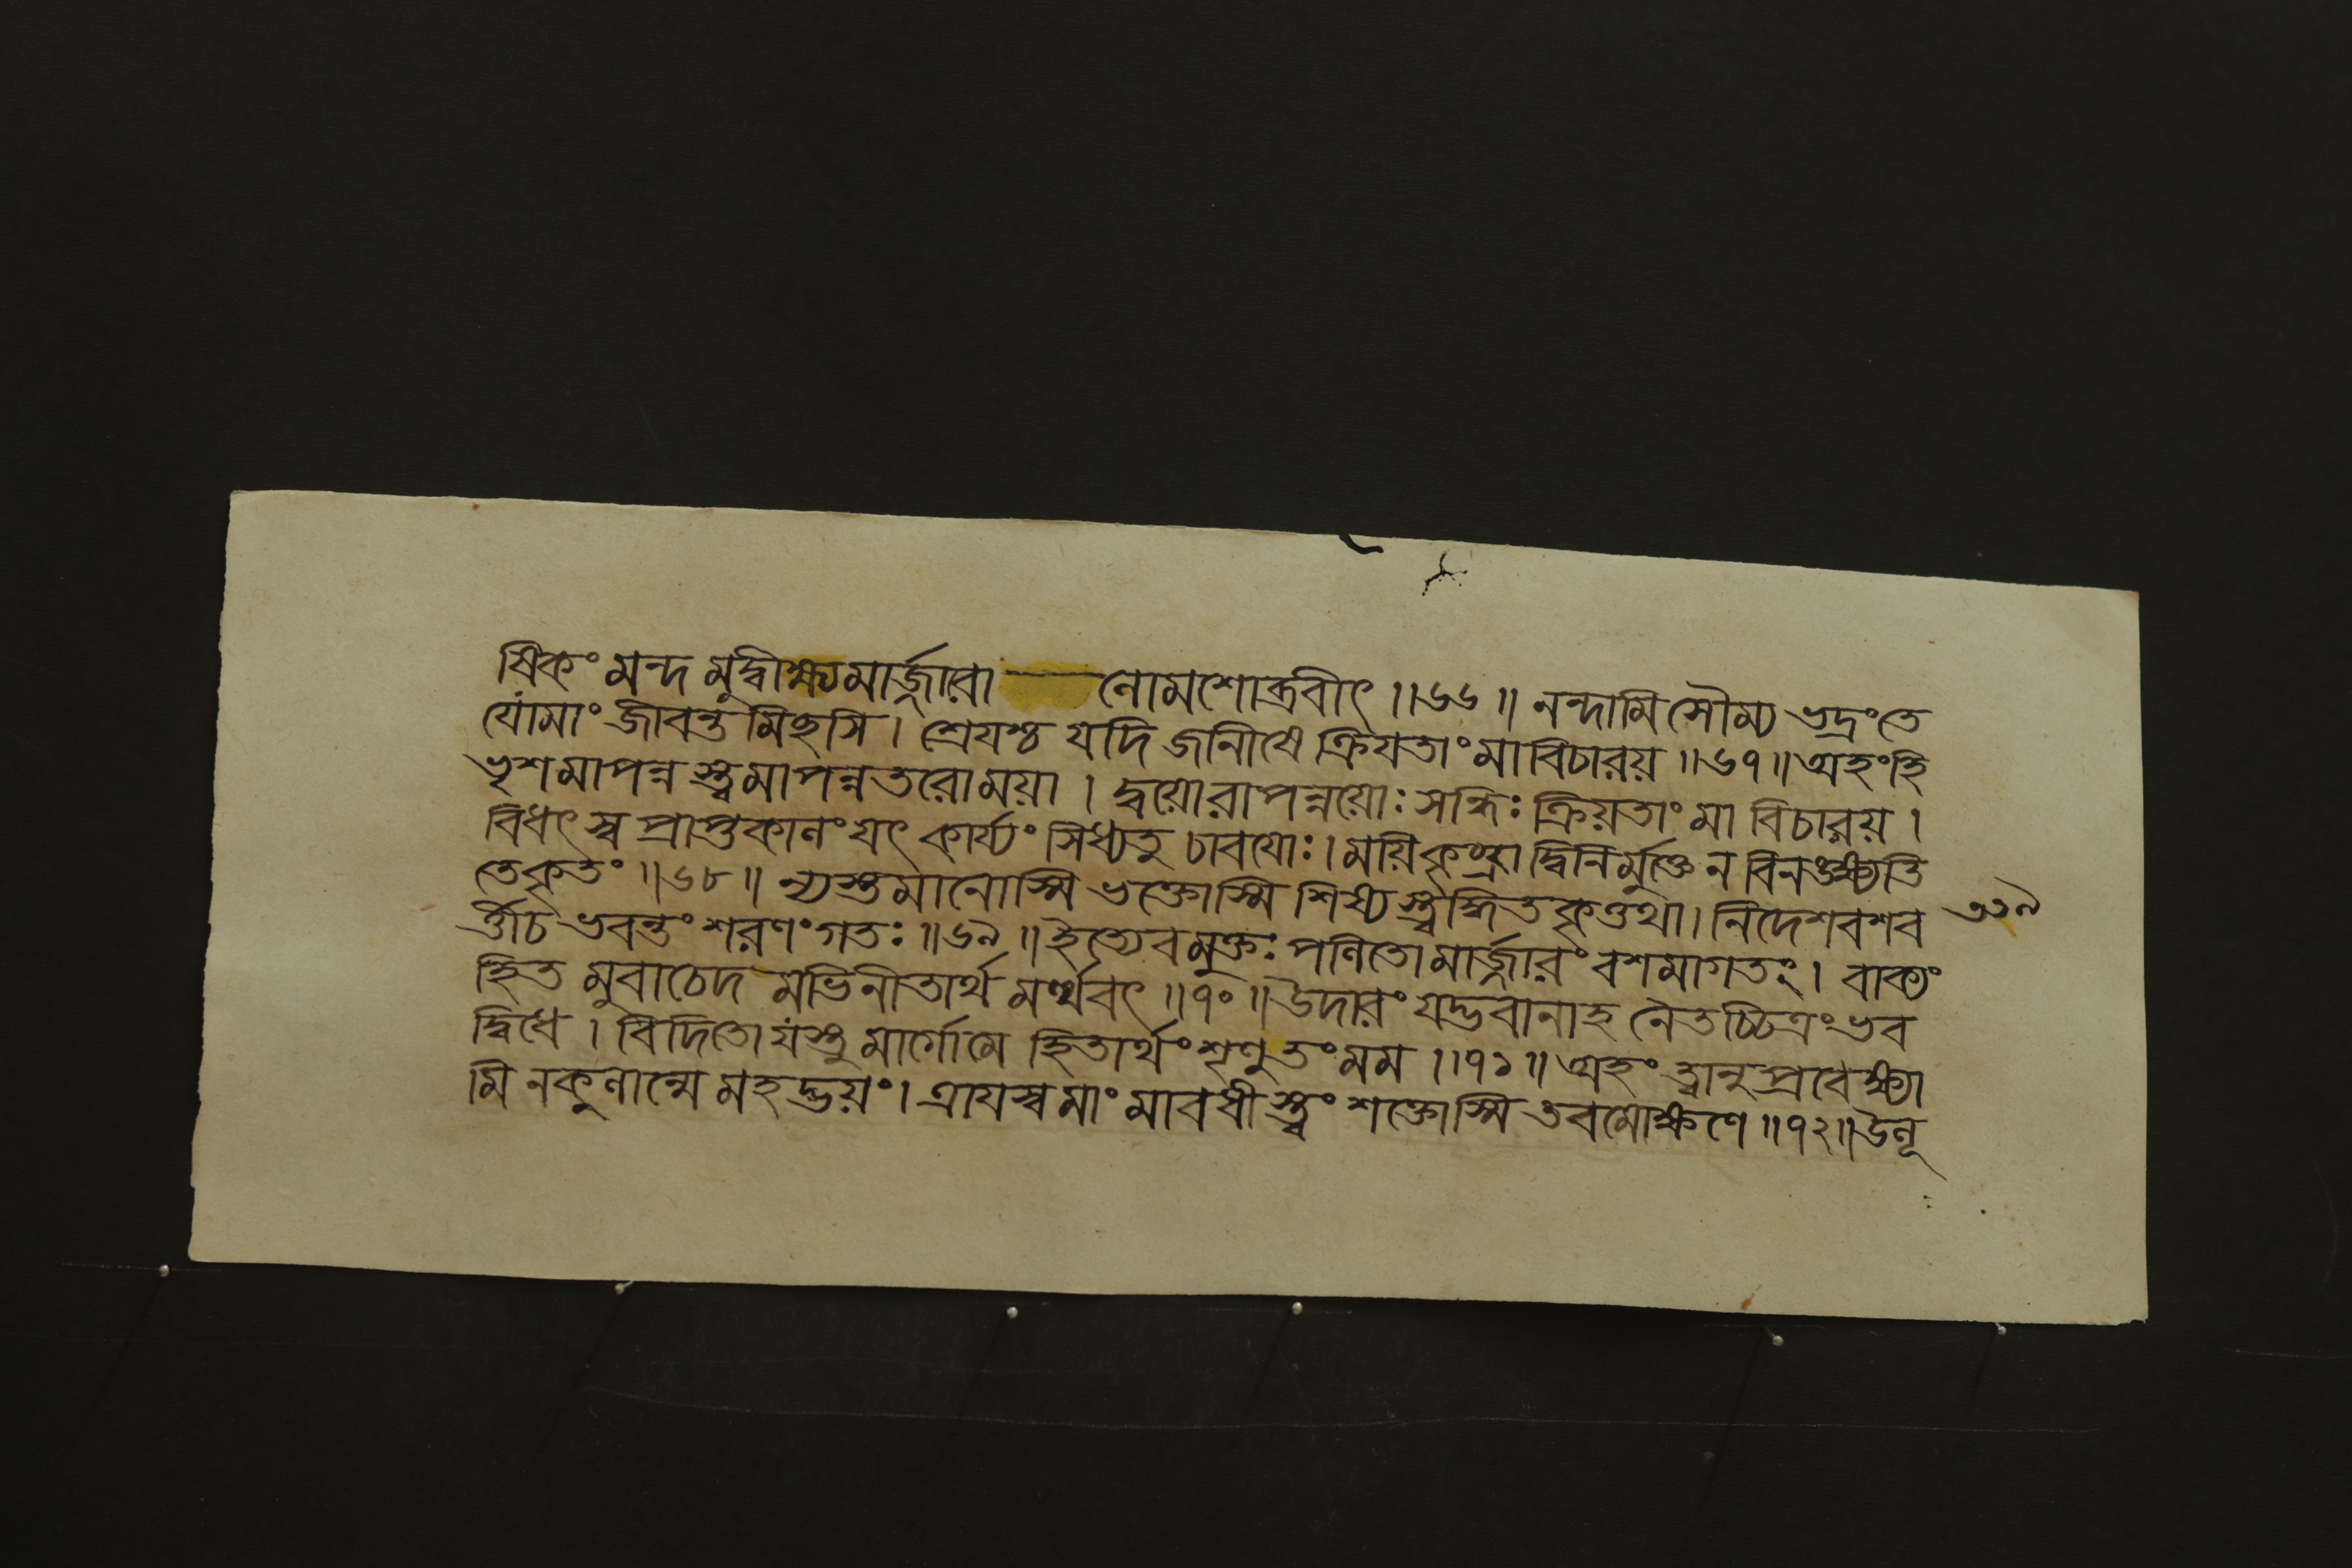 ষিকং মন্দ মুদ্বীক্ষ্যমার্জ্জারো — নোমশোব্রবীৎ ॥৬৬॥ নন্দামি সৌম্য ভদ্রংতে
যোমাং জীবন্ত মিছসি । শ্রেযশ্চ যদি জানীষে ক্রিযতাং মাবিচারয় ॥৬৭॥ অহংহি
ভৃশমাপন্ন স্ত্বমাপন্নতরোময়া । দ্বয়োরাপন্নয়োঃ সন্ধিঃ ক্রিয়তাং মা বিচারয় ।
বিধৎস্ব প্রাপ্তকালং যৎ কার্য্যং সিধ্যতু চাবযোঃ । ময়িকৃচ্ছ্রাদ্বিনির্মুক্তে ন বিনঙক্ষ্যতি
তেকৃতং ॥৬৮॥ ন্যস্তমানোস্মি ভক্তোস্মি শিষ্য স্ত্বদ্ধিতকৃত্তথা । নিদেশবশব
র্ত্তীচ ভবন্তং শরণংগতঃ ॥৬৯॥ ইত্যেবমুক্তঃ পলিতো মার্জ্জারং বশমাগতং । বাক্যং
হিত মুবাচেদ মভিনীতার্থ মর্থবৎ ॥৭০॥ উদারং যদ্ভবানাহ নৈতচ্চিত্রংভব
দ্বিধে । বিদিতো যস্তু মার্গোমে হিতার্থং শৃণু তং মম ॥৭১॥ অহং ত্বানুপ্রবেক্ষ্যা
মি নকুলান্মে মহদ্ভয়ং । ত্রাযস্ব মাং মাবধী স্ত্বং শক্তোস্মি তবমোক্ষণে ॥৭২॥ উলূ
৩১৯